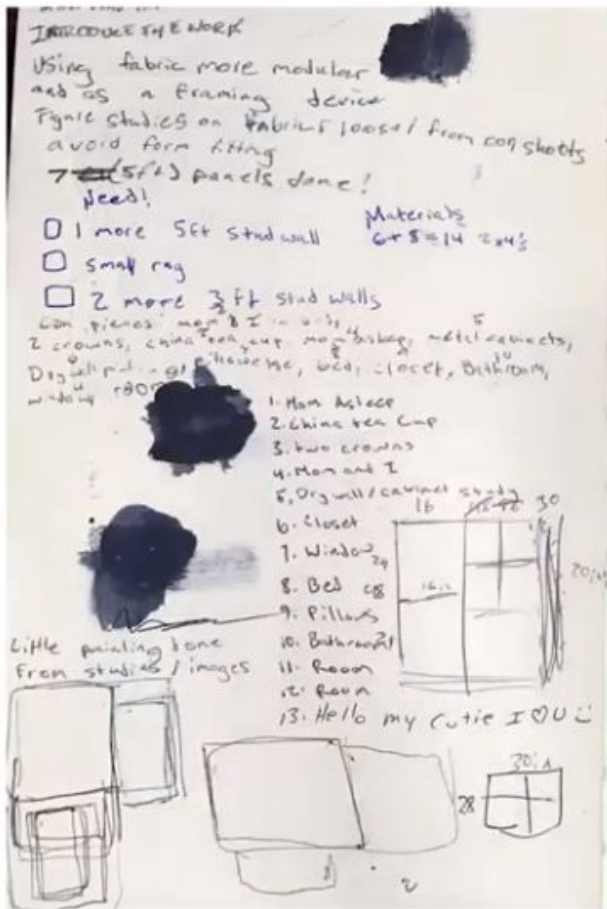 INTRODUCE THE WORK
Using fabric more modular
and as a framing device
Figure studies on fabric loose/ from con shoots
avoid form fitting
7 (5ft) panels done!
Need!
1 more 5ft stud wall
small rag
2 more ft stud walls
Materials
6+8=14 2x4's
2 crowns, china tea cup, metal cabinets,
bed, closet, Bathroom,
window room
1. Mom Asleep
2. China tea Cup
3. two crowns
4. Mom and I
5. Dry wall/cabinet study
6. Closet
7. Window
8. Bed
9. Pillows
10. Bathroom
11. Room
12. Room
13. Hello my cutie I ♡ U
16
30
20in
Little painting done
from studies / images
30in
28
2